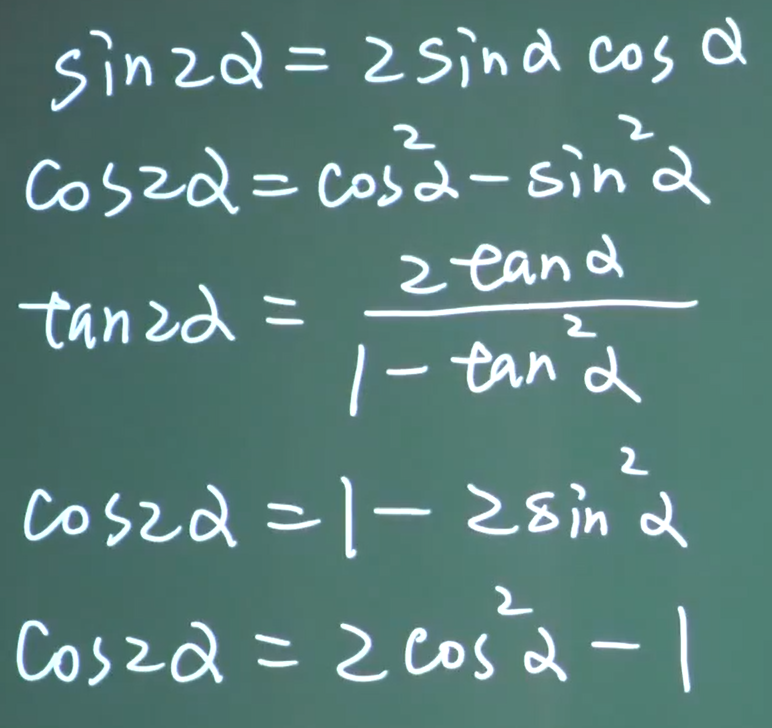 sin2α = 2sinα cosα
cos2α = cos²α - sin²α
tan2α = \frac{2tanα}{1 - tan²α}
cos2α = 1 - 2sin²α
cos2α = 2cos²α - 1